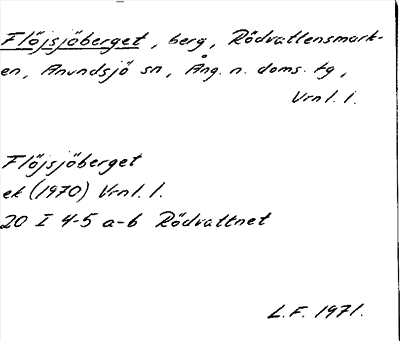 Flöjsjöberget, berg, Rödvattensmark-
en, Anundsjö sn, Ång. n. doms. tg,
Vrnl. l.
Flöjsjöberget
ek (1970) Vrnl. l.
20 I 4-5 a-b Rödvattnet
L.F. 1971.